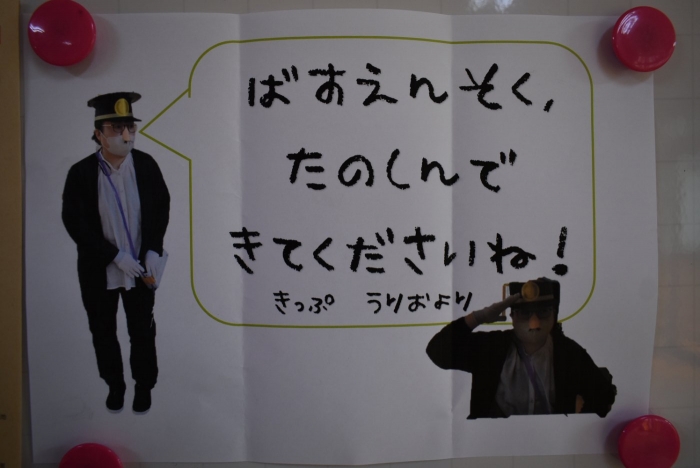 ばすえんそく，
たのしんで
きてくださいね！
きっぷ　うりおより